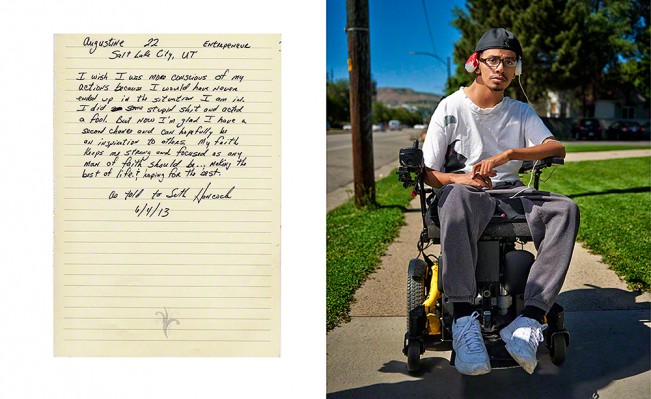 Augustine 22 Entrepreneur
Salt Lake City, UT
I wish I was more conscious of my
actions because I would have never
ended up in the situation I am in.
I did some stupid shit and acted
a fool. But now I'm glad I have a
second chance and can hopefully be
an inspiration to others. My faith
keeps me strong and focused as any
man of faith should be... making the
best of life & hoping for the best.
as told to Seth Hancock
6/4/13